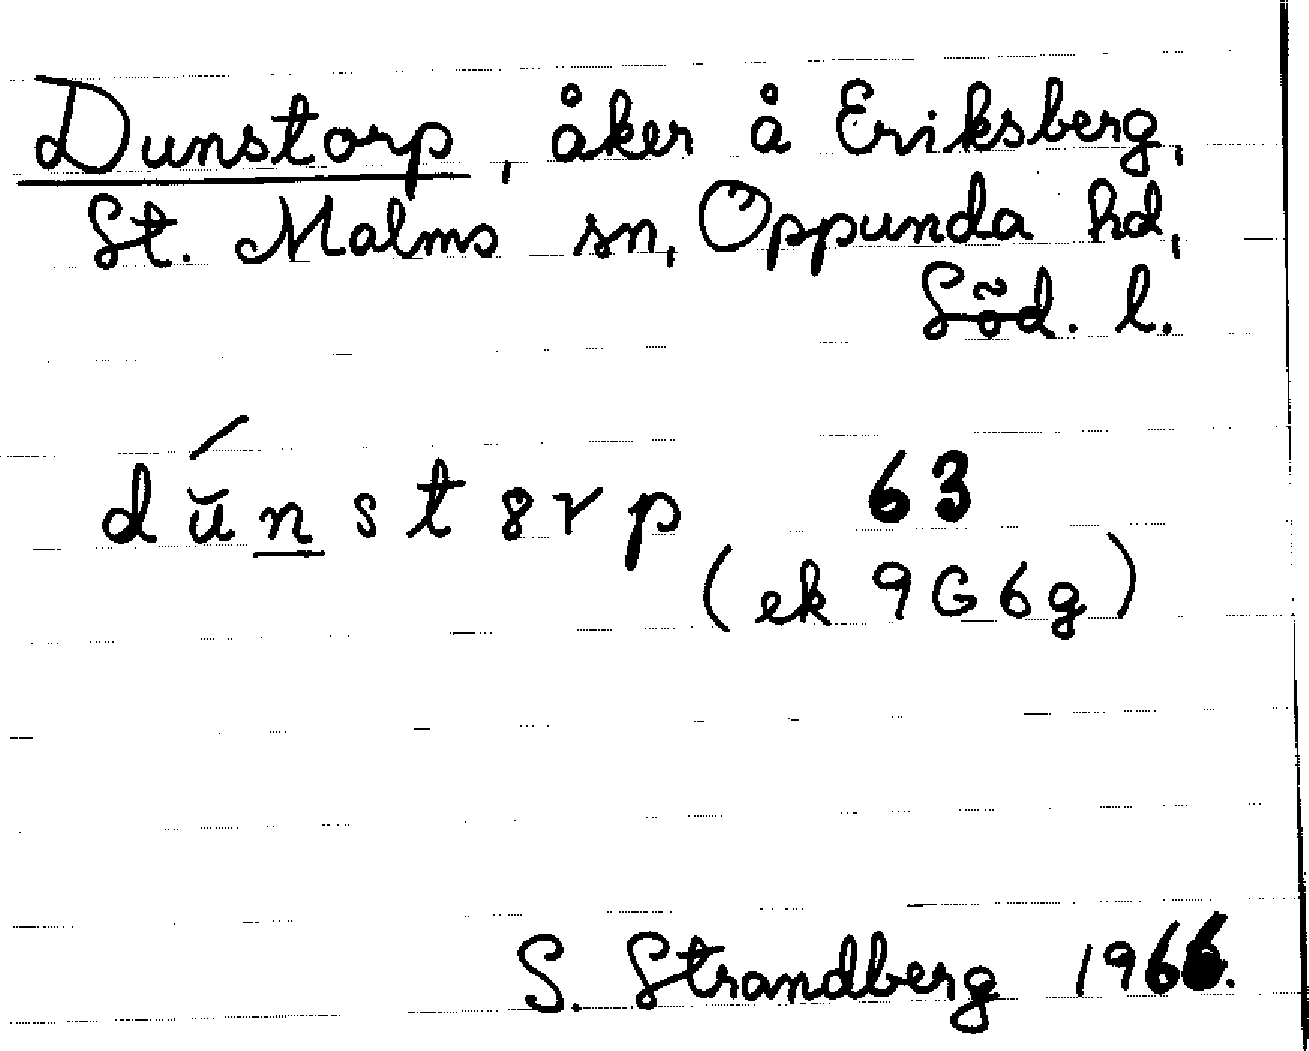 Dunstorp, åker å Eriksberg,
St. Malms sn, Oppunda hd,
Söd. l.
dú̆n̲st8rp 63
(ek 9G6g)
S. Strandberg 1966.